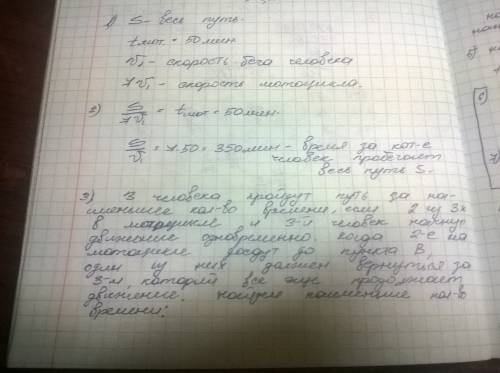 1) S - весь путь.
tмот. = 50 мин
V₁ - скорость бега человека
7V₁ - скорость мотоцикла.
2) S/7V₁ = tмот = 50 мин.
S/V₁ = 7·50 = 350 мин - время за кот-е
человек пробегает
весь путь S.
3) 3 человека пройдут путь за наи-
сменьшее кол-во времени, если 2 из 3х
в мотоцикле и 3-й человек начнут
движение одновременно. Когда 2-е на
мотоцикле доедут до пункта В,
один из них должен вернуться за
3-м, который все еще продолжает
движение. Найдем наименьшее кол-во
времени:
5)
6)